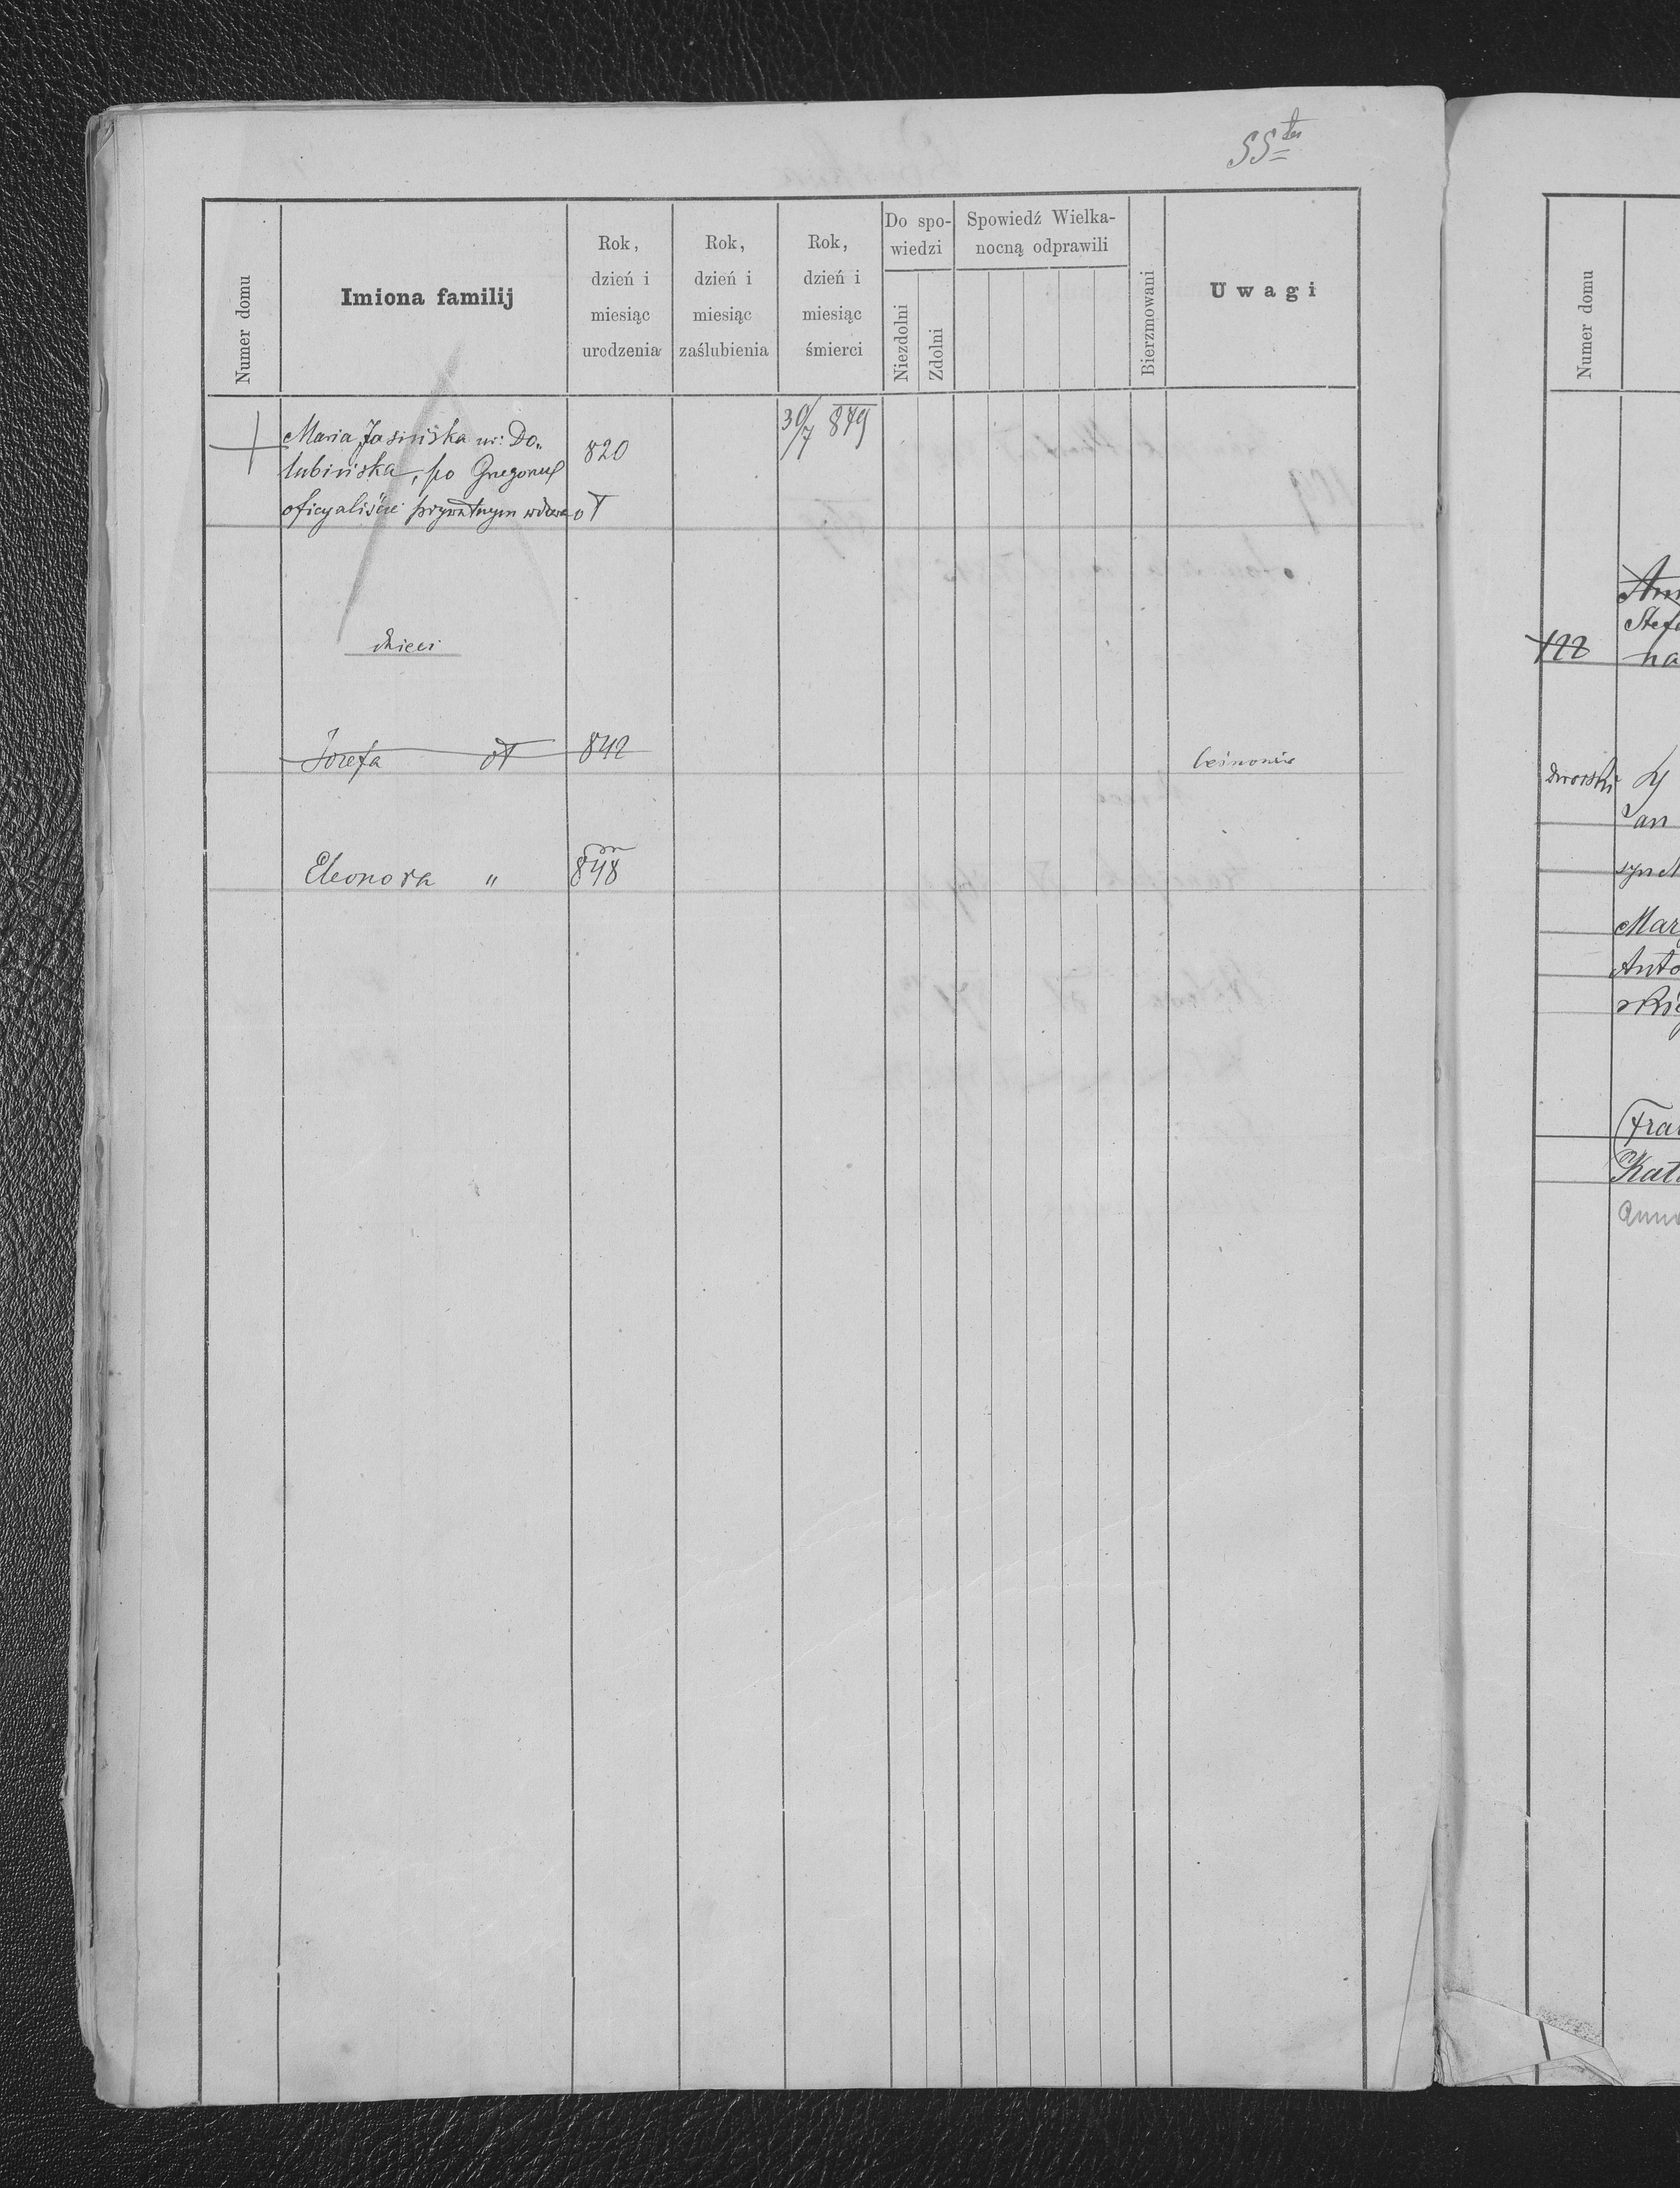 55ter
Numer domu
Imiona familij
Rok,
dzień i
miesiąc
urodzenia
Rok,
dzień i
miesiąc
zaślubienia
Rok,
dzień i
miesiąc
śmierci
Do spo-
wiedzi
Niezdolni
Zdolni
Spowiedź Wielka-
nocną odprawili
Bierzmowani
Uwagi
Maria Jasińska ur: Do„
820
30/7 879
lubińska, po Gregorzu
oficyaliście prywatnym wdowa
dzieci
Józefa
842
Eleonora "
848
Numer domu
Stefa
122
na
dworski
Jan
syn M
Mar
Anto
skie
Fran
Kata
Anna